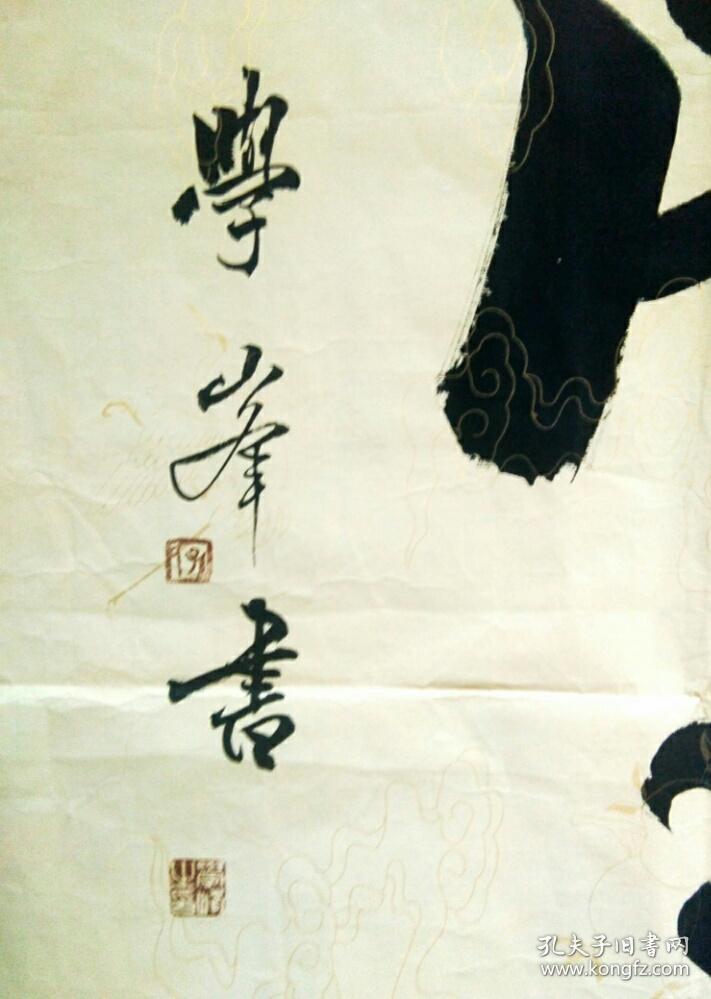 學峯書
孔夫子旧書网
www.kongfz.com